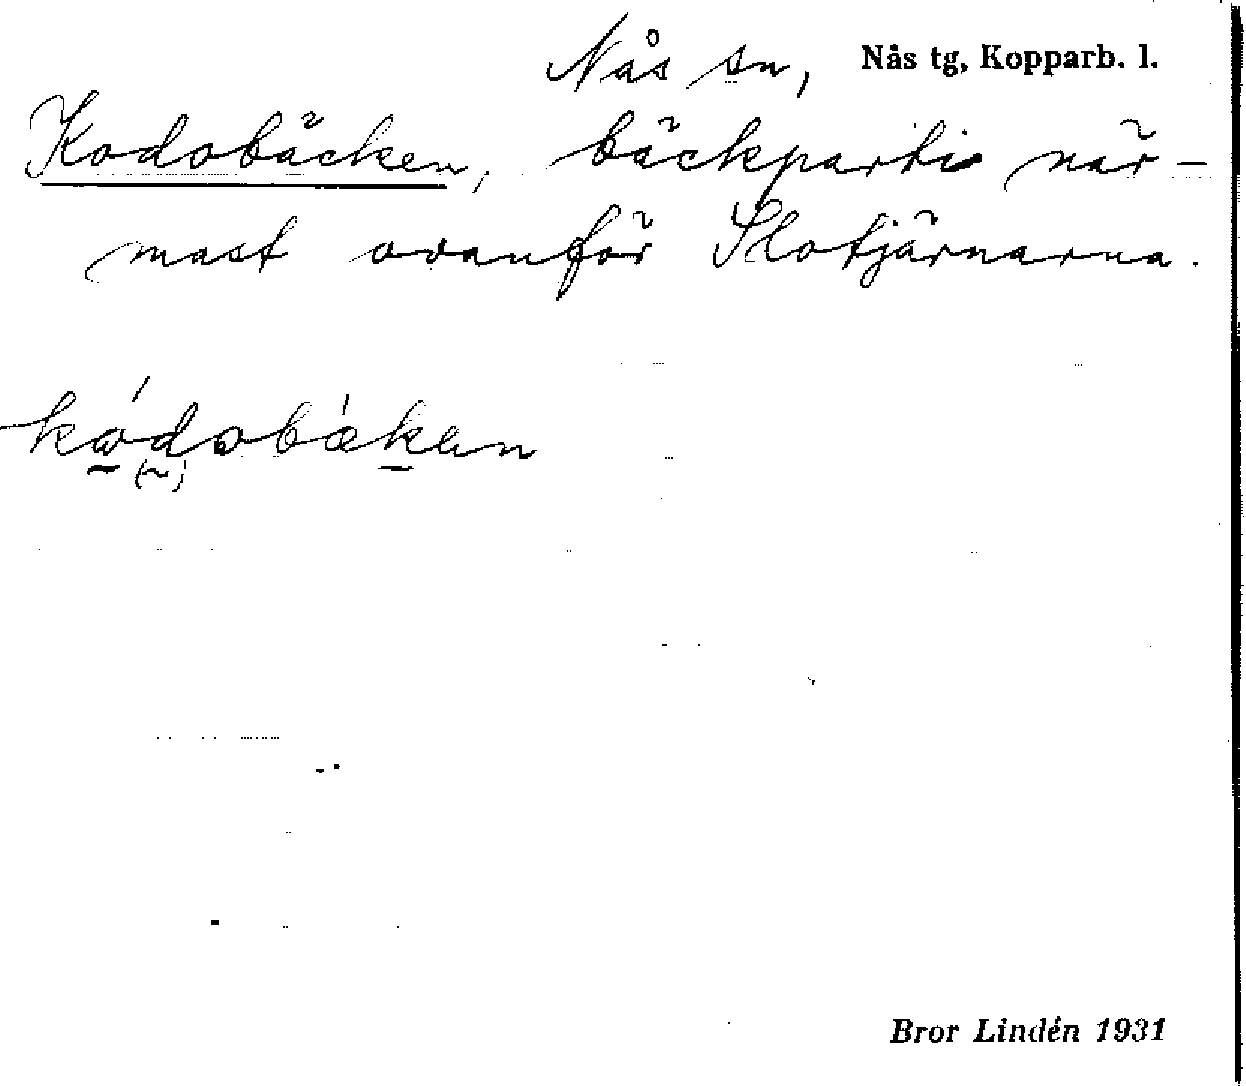 Nås sn, Nås tg, Kopparb. l.
Kodobäcken, bäckparti när-
mast ovanför Slotjärnarna.
kódobä́kan
Bror Lindén 1931